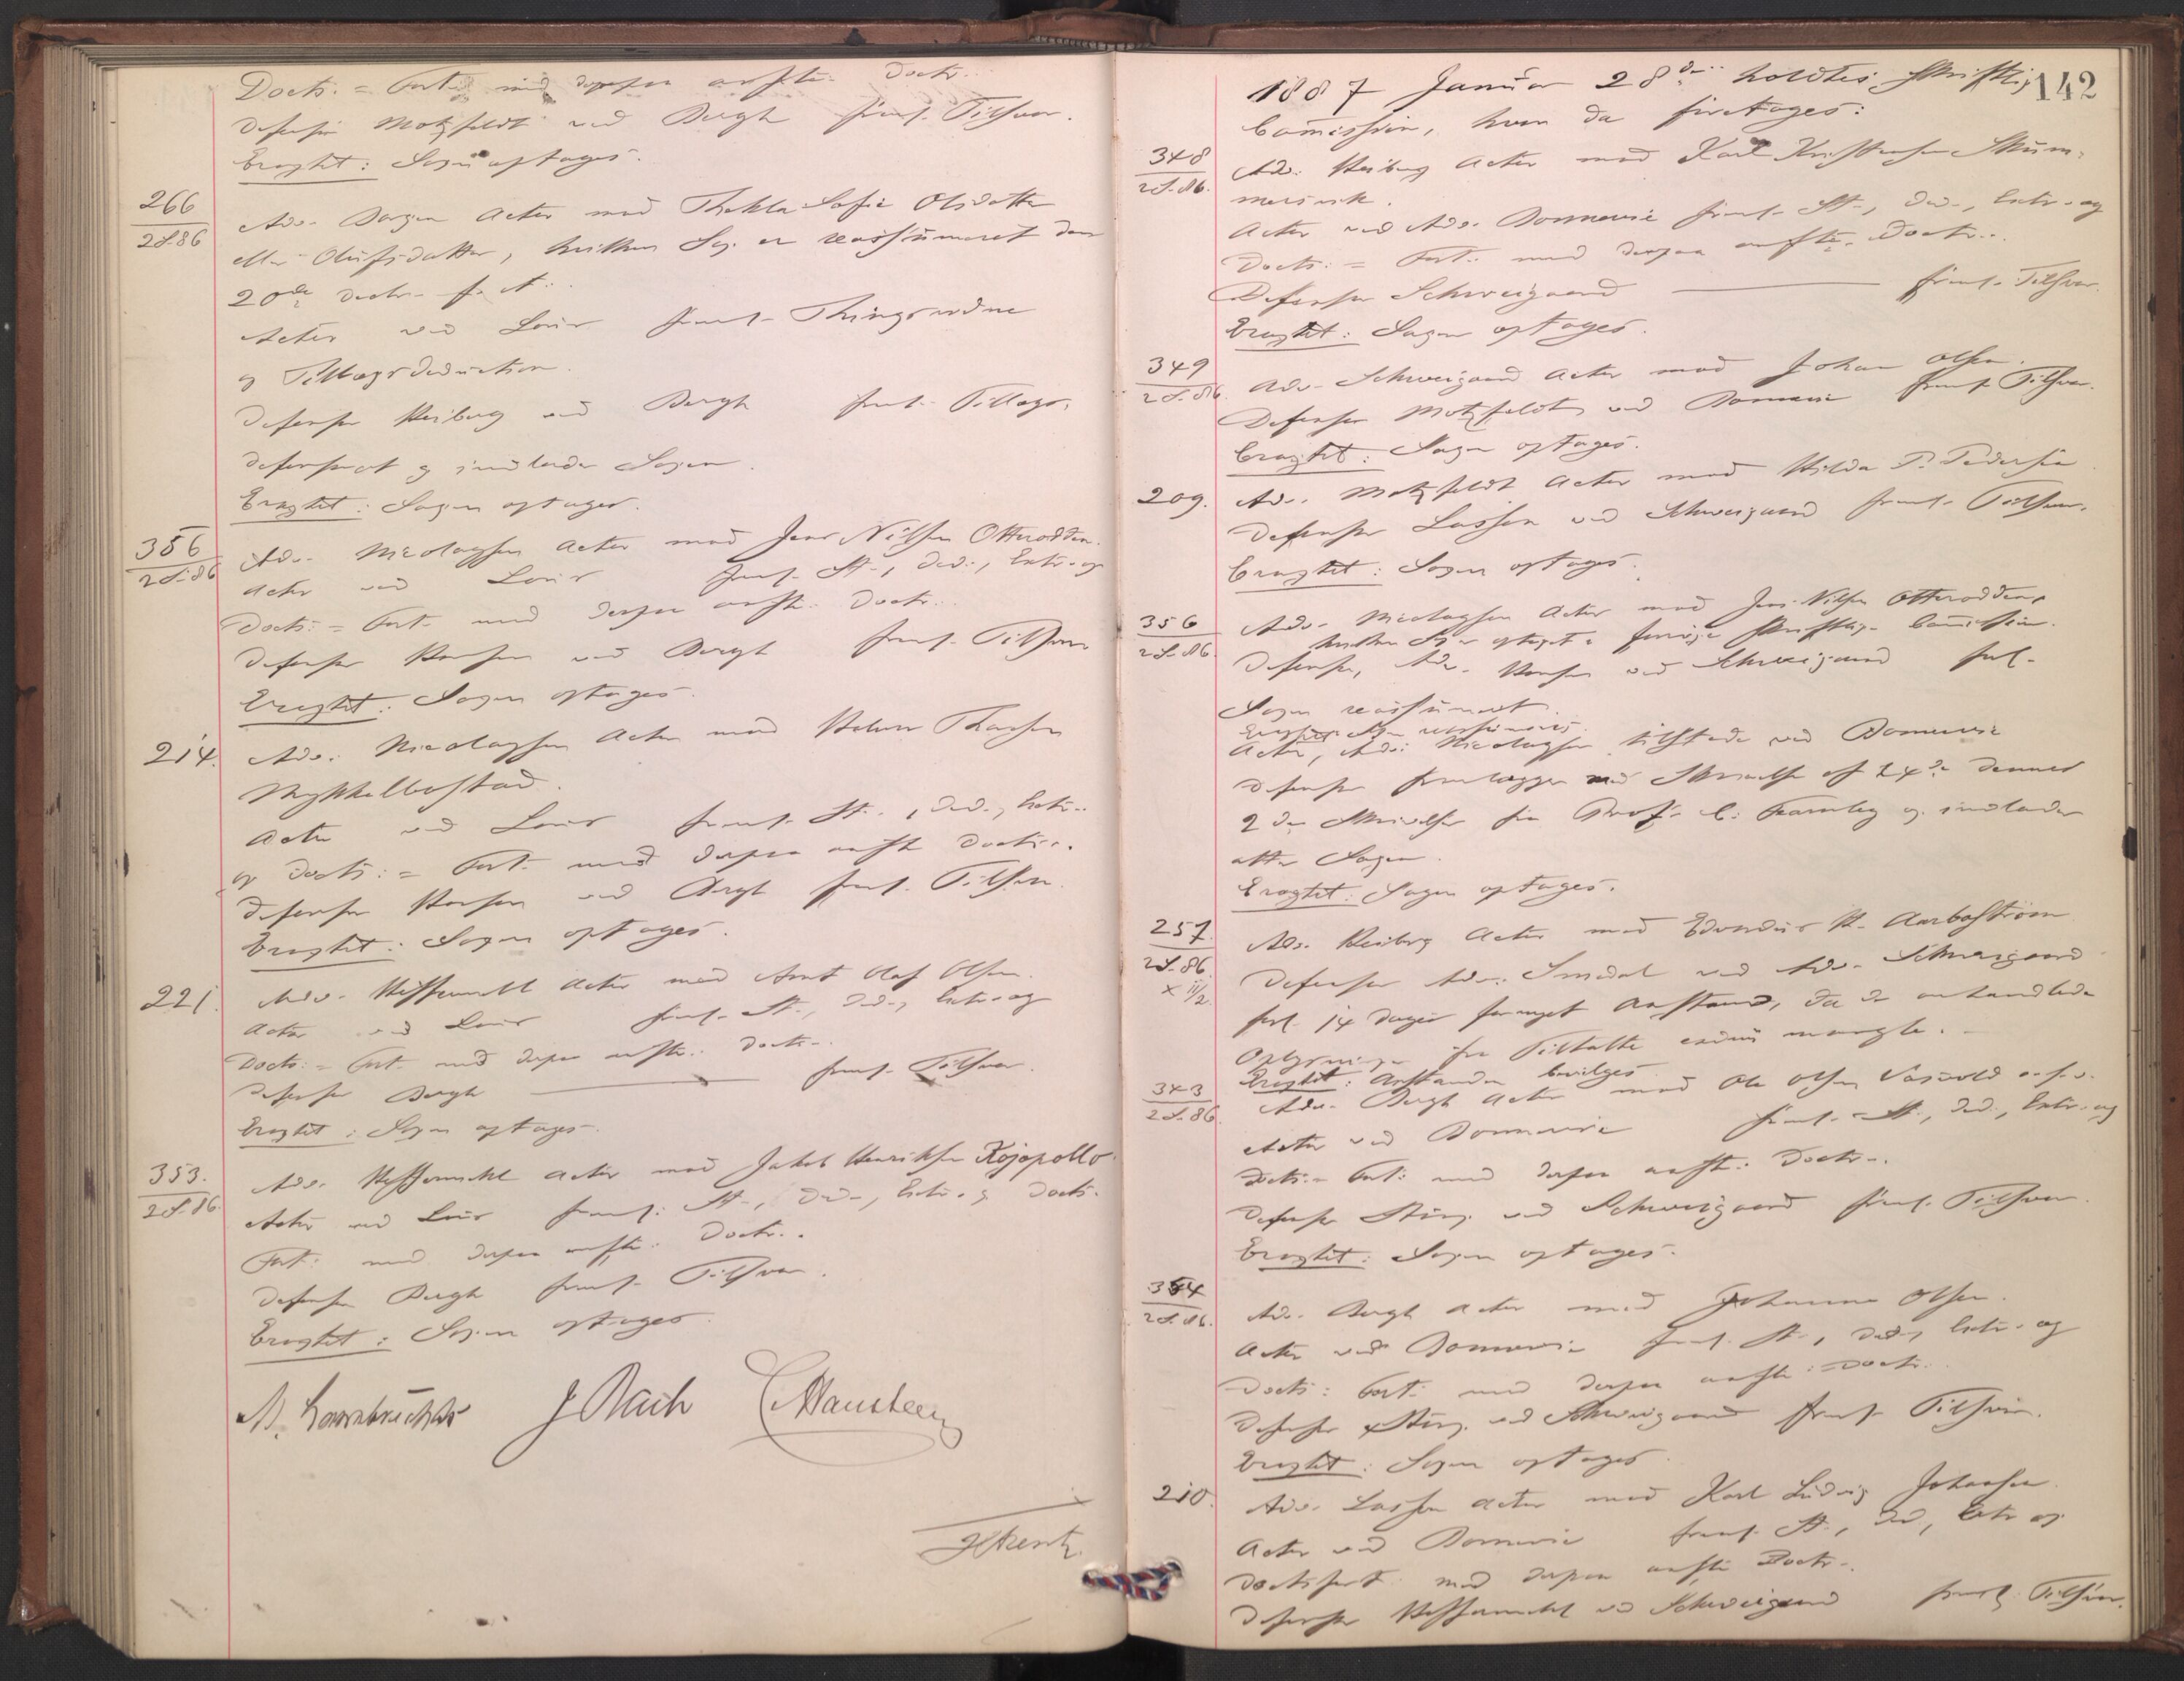 Docts: = Fort. med derpaa anfte. Doctr.
Defensor Motzfeldt ved Bergh freml. Tilsvar.
Eragtet: Sagen optages.
266
2 S. 86
Adv. Actor mod Thekla Sofie Olsdatter
eller Olufsdatter, hvilken Sag er reassumeret den
20de Decbr. f. A.
Actor ved Lous freml. Thingsvidne
og Tillægsdeduction.
Defensor Heiberg ved Bergh freml. Tillægs-
defensorat og indlader Sagen.
Eragtet: Sagen optages.
356
2 S. 86
Adv. Nicolaysen Actor mod Jens Nilsen Otterodden.
Actor ved Lous freml. St., Ded., Extr. og
Docts: = Fort. med derpaa anfte. Doctr.
Defensor Hansen ved Bergh freml. Tilsvar
Eragtet: Sagen optages.
214.
Adv. Nicolaysen Actor mod Thorsen
Myklebostad.
Actor ved Lous freml. St., Ded., Extr.
og Docts: = Fort. med derpaa anfte Doctr.
Defensor Hansen ved Bergh freml. Tilsvar.
Eragtet: Sagen optages.
221.
Adv. Heffermehl Actor mod Arnt Olaf Olsen.
Actor ved Lous freml. St., Ded., Extr. og
Docts: = Fort. med derpaa anfte. Doctr.
Defensor Bergh freml. Tilsvar.
Eragtet: Sagen optages.
353.
2 S. 86.
Adv. Heffermehl Actor mod Jakob Henriksen Kojopollo.
Actor ved Lous freml. St., Ded., Extr. og Docts.
Fort. med derpaa anfte. Doctr.
Defensor Bergh freml. Tilsvar.
Eragtet: Sagen optages.
M. Lambrechts J Bach C Hansteen
142
1887 Januar 28de holdtes skriftlig
Comission, hvor da foretoges:
348
2 S. 86.
Adv. Heiberg Actor mod Karl Kristensen Skum-
mersvik.
Actor ved Adv. Bonnevie freml. St., Ded., Extr. og
Docts: = Fort. med derpaa anfte. Doctr.
Defensor Schweigaard freml. Tilsvar.
Eragtet: Sagen optages.
349
2 S. 86.
Adv. Schweigaard Actor mod Johan Olsen.
Defensor Motzfeldt ved Bonnevie freml. Tilsvar.
Eragtet: Sagen optages.
209.
Adv. Motzfeldt Actor mod Hilda P. Pedersen
Defensor Lassen ved Schweigaard freml. Tilsvar.
Eragtet: Sagen optages.
356
2 S. 86.
Adv. Nicolaysen Actor mod Jens Nilsen Otterodden,
hvilken Sag er optaget i forrige skriftlige Comission.
Defensor, Adv. Hansen ved Schweigaard forl.
Sagen reassumeret.
Eragtet: Sagen reassumeres.
Actor, Adv. Nicolaysen tilstede ved Bonnevie
Defensor fremlægger med Skrivelse af 24de dennes
2 de Skrivelser fra Prof. C. Fearnley og indlader
atter Sagen.
Eragtet: Sagen optages.
257.
2 S. 86.
x 11/2.
Adv. Heiberg Actor mod H. Aarbostrøm
Defensor Adv. Smedal ved Adv. Schweigaard
forl. 14 Dages fornyet Anstand, da de anhandlede
Oplysninger fra Tiltalte endnu mangle.
Eragtet: Anstanden bevilges.
343
2 S. 86.
Adv. Bergh Actor mod Ole Olsen
Actor ved Bonnevie freml. St., Ded., Extr. og
Docts: = Fort. med derpaa anfte. Doctr.
Defensor Stang ved Schweigaard freml. Tilsvar.
Eragtet: Sagen optages.
354
2 S. 86.
Adv. Bergh Actor mod Johannes Olsen.
Actor ved Bonnevie freml. St., Ded., Extr. og
Docts: Fort. med derpaa anfte. Doctr.
Defensor Stang ved Schweigaard freml. Tilsvar.
Eragtet: Sagen optages.
210.
Adv. Lassen Actor mod Karl Ludvig Johansen.
Actor ved Bonnevie freml. St., Ded., Extr. og
Doctsfort. med derpaa anfte Doctr.
Defensor Heffermehl ved Schweigaard freml. Tilsvar.